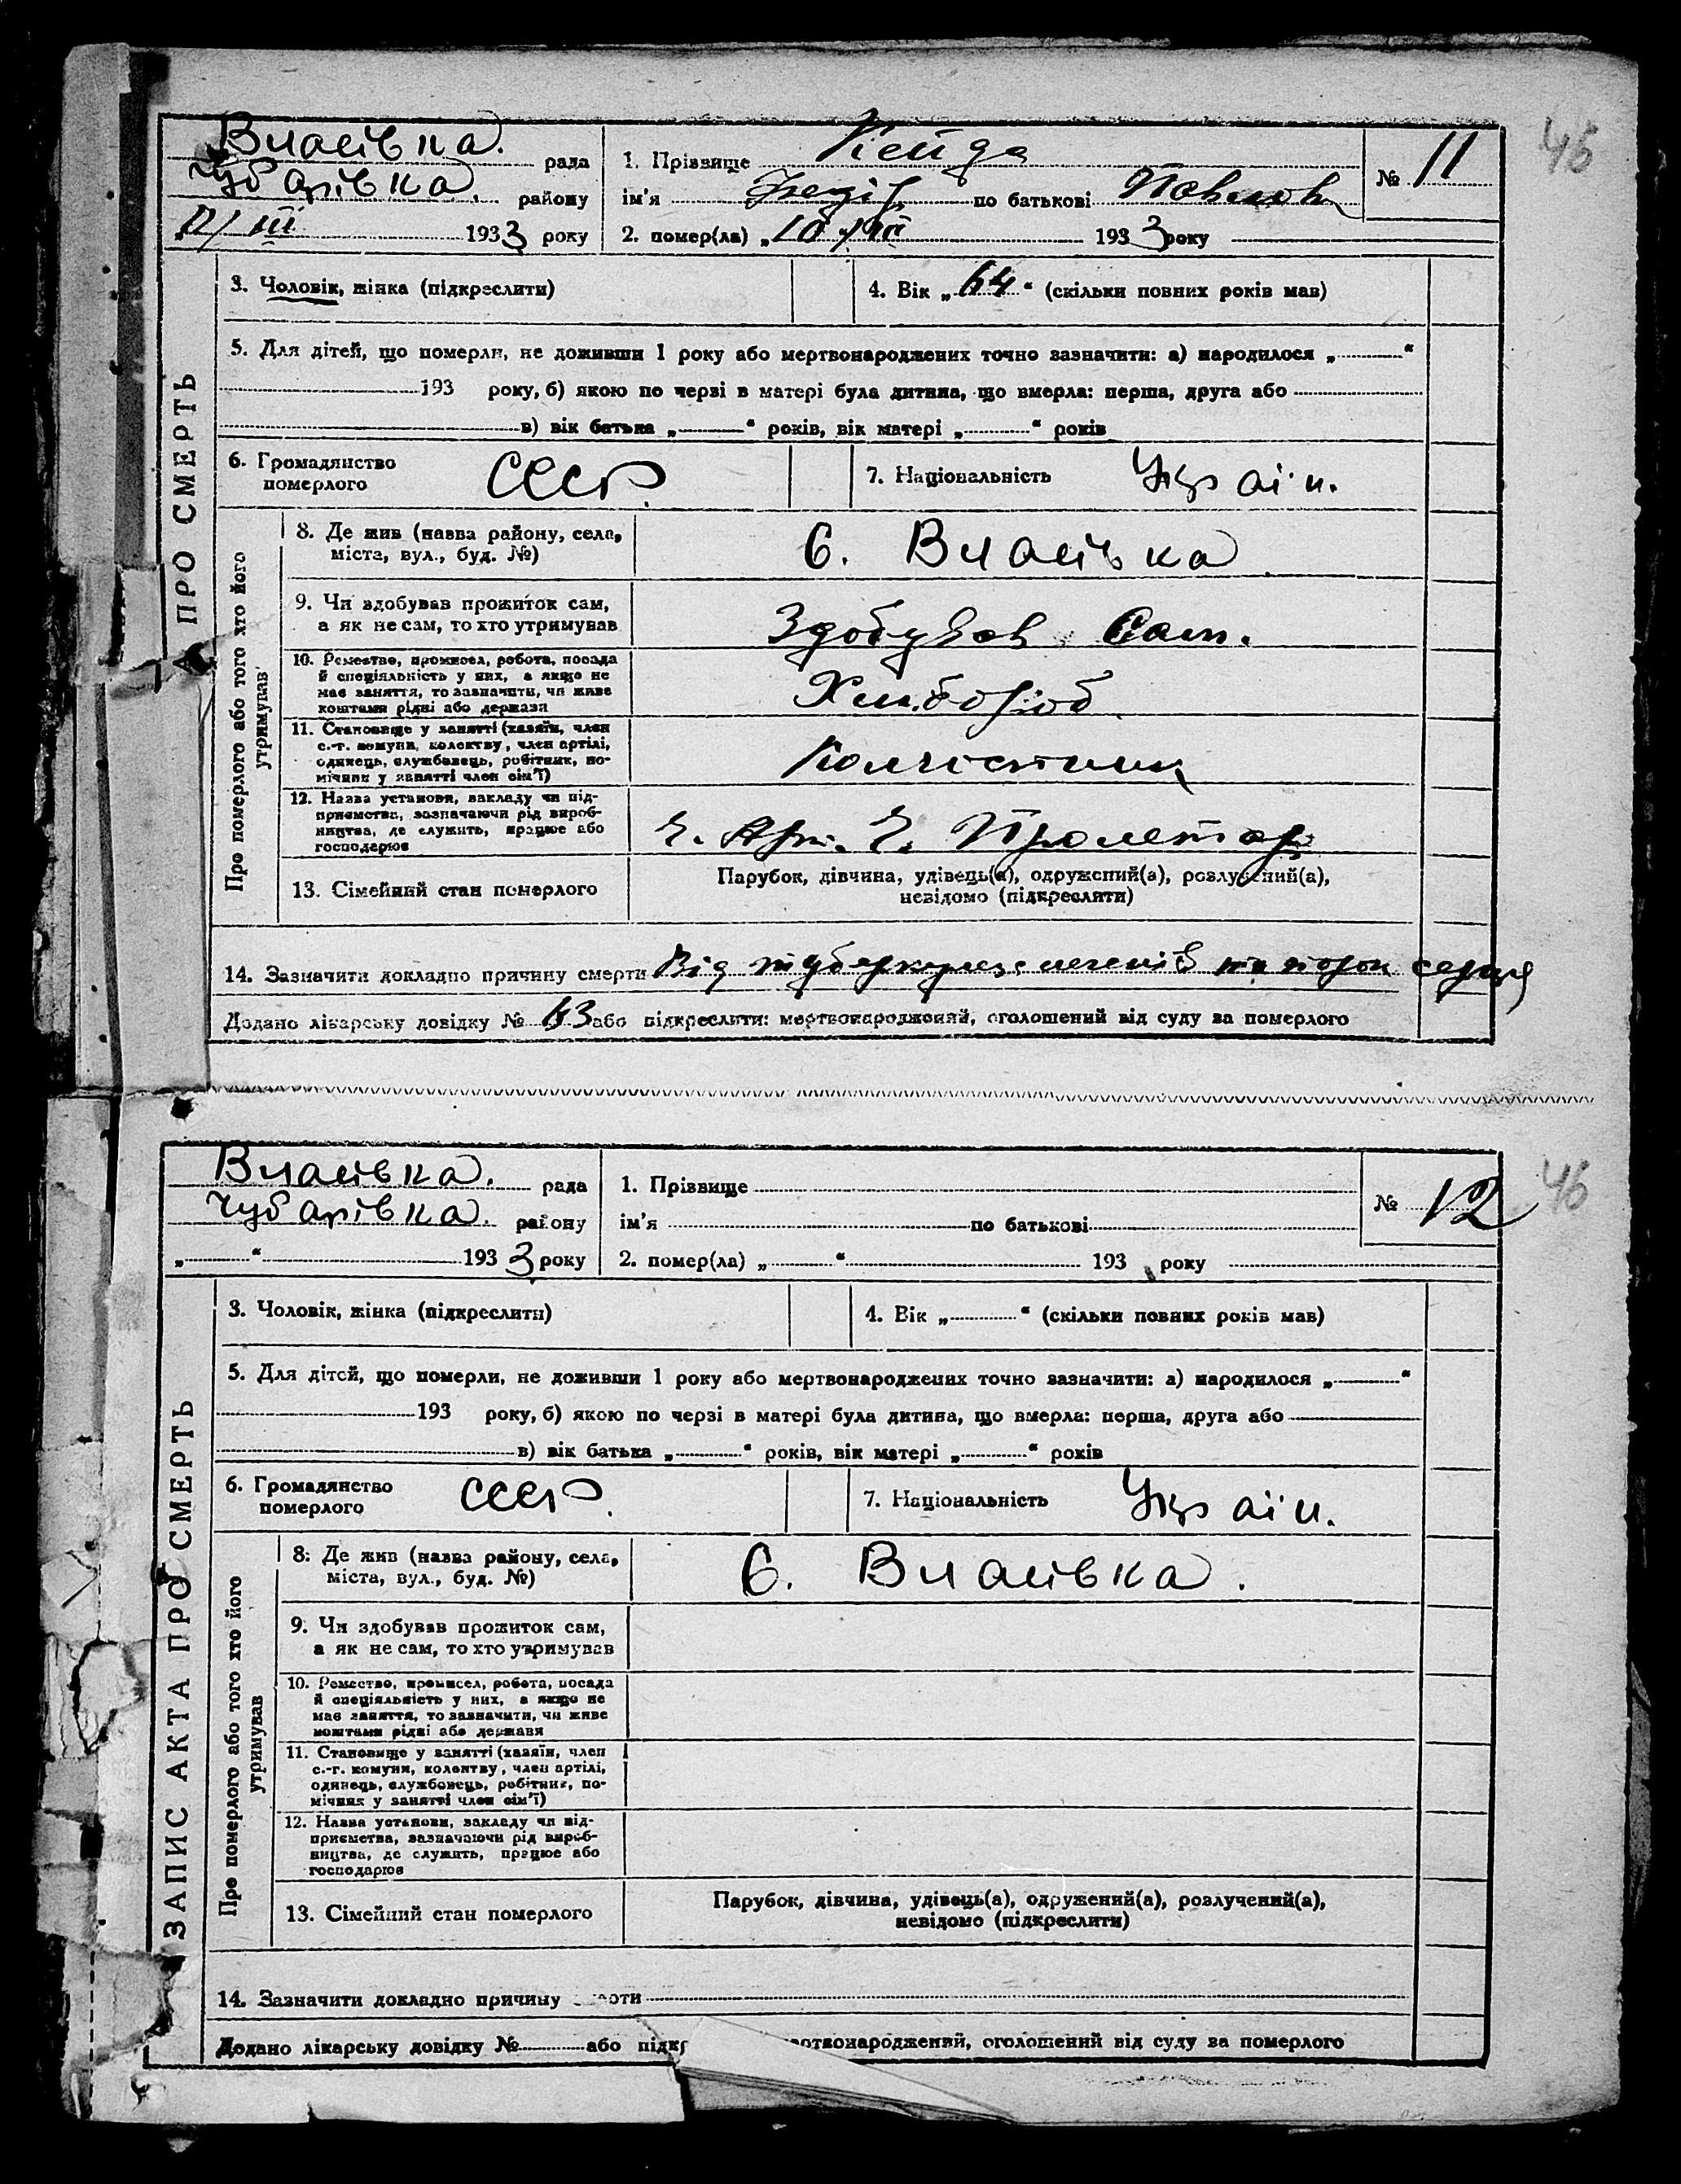 45
Власівка. рада
Чубарівка. району
12/III 1933 року
1. Прізвище Кейда
ім'я по батькові Павлов
2. помер(ла) „10 1933 року
№ 11
ПРО СМЕРТЬ
3. Чоловік, жінка (підкреслити)
4. Вік „64“ (скільки повних років мав)
5. Для дітей, що померли, не доживши 1 року або мертвонароджених точно зазначити: а) народилося „ “
193 року, б) якою по черзі в матері була дитина, що вмерла: перша, друга або
в) вік батька „ “ років, вік матері „ “ років
6. Громадянство
померлого
СССР.
7. Національність Україн.
Про померлого або того хто його
утримував
8. Де жив (назва району, села,
міста, вул., буд. №)
С. Власівка
9. Чи здобував прожиток сам,
а як не сам, то хто утримував
Здобував Сам.
10. Ремество, промисел, робота, посада
й спеціяльність у них, а якщо не
має заняття, то зазначити, чи живе
коштами рідні або держави
Хлибороб
11. Становище у занятті (хазяїн, член
с.-г. комуни, колективу, член артілі,
одинець, службовець, робітник, по-
мічник у занятті член сім'ї)
Колгостник
12. Назва установи, закладу чи під-
приємства, зазначаючи рід вироб-
ництва, де служить, працює або
господарює
Ч. Арт. Ч. Пролетар
13. Сімейний стан померлого
Парубок, дівчина, удівець(а), одружений(а), розлучений(а),
невідомо (підкреслити)
14. Зазначити докладно причину смерти Від туберкулез легенів та порок серця
Додано лікарську довідку № 63 або підкреслити: мертвонароджений, оголошений від суду за померлого
46
Власівка. рада
Чубарівка. району
„ “ 1933 року
1. Прізвище
ім'я по батькові
2. помер(ла) „ “ 193 року
№ 12
ЗАПИС АКТА ПРО СМЕРТЬ
3. Чоловік, жінка (підкреслити)
4. Вік „ “ (скільки повних років мав)
5. Для дітей, що померли, не доживши 1 року або мертвонароджених точно зазначити: а) народилося „ “
193 року, б) якою по черзі в матері була дитина, що вмерла: перша, друга або
в) вік батька „ “ років, вік матері „ “ років
6. Громадянство
померлого
СССР.
7. Національність Україн.
Про померлого або того хто його
утримував
8. Де жив (назва району, села,
міста, вул., буд. №)
С. Власівка.
9. Чи здобував прожиток сам,
а як не сам, то хто утримував
10. Ремество, промисел, робота, посада
й спеціяльність у них, а якщо не
має заняття, то зазначити, чи живе
коштами рідні або держави
11. Становище у занятті (хазяїн, член
с.-г. комуни, колективу, член артілі,
одинець, службовець, робітник, по-
мічник у занятті член сім'ї)
12. Назва установи, закладу чи під-
приємства, зазначаючи рід вироб-
ництва, де служить, працює або
господарює
13. Сімейний стан померлого
Парубок, дівчина, удівець(а), одружений(а), розлучений(а),
невідомо (підкреслити)
14. Зазначити докладно причину
Додано лікарську довідку № або оголошений від суду за померлого